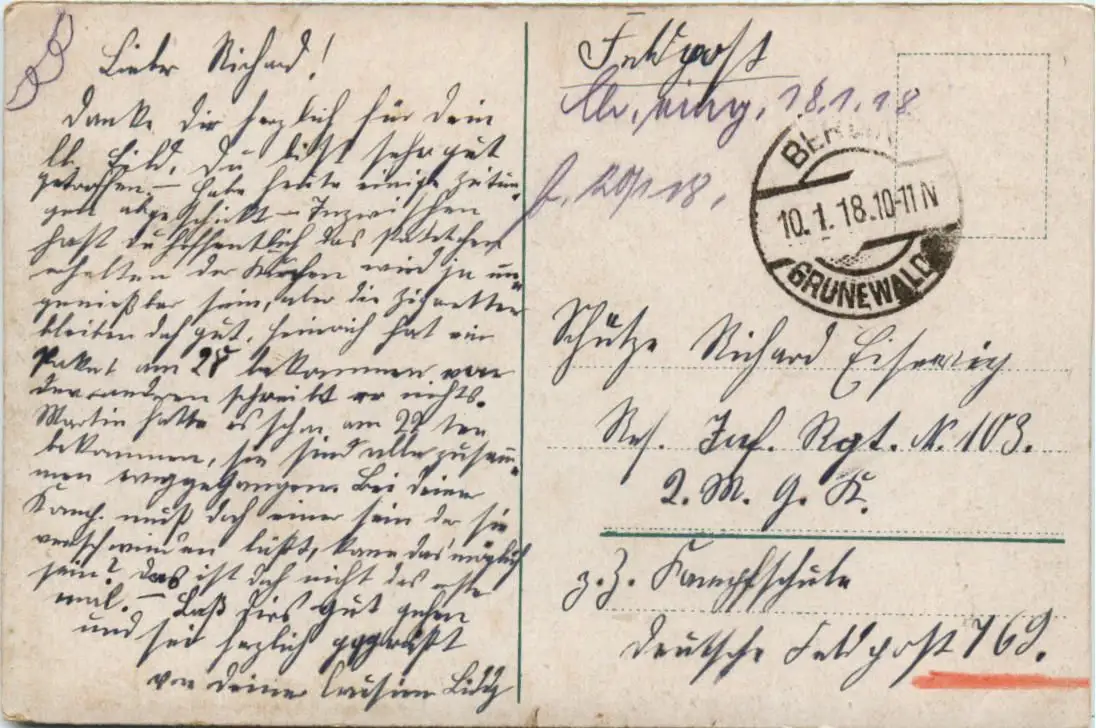 Lieber Richard!
Danke Dir herzlich für Dein
lb. Bild, Du bist sehr gut
getroffen. – Habe heute einige Zeitun-
gen abgeschickt – Inzwischen
hast Du hoffentlich das Päckchen
erhalten der Kuchen wird ja un-
genießbar sein, aber die Zigaretten
bleiben doch gut. Heinrich hat ein
Paket am 28 bekommen von
den anderen schreibt er nichts.
Martin hatte es schon am 22 ten
bekommen, sie sind alle zusam-
men weggegangen. Bei Deiner
Komp. muß doch einer sein der sie
verschwinden läßt, kann das möglich
sein? Das ist doch nicht das erste
mal. – Laß Dirs gut gehen
und sei herzlich gegrüßt
von Deiner Cousine Liddy
Feldpost
18.1.18
BERLIN
10.1.18.10-11N
GRUNEWALD
Schütze Richard
Res. Inf. Rgt. N. 103.
2. M. G. K.
z. Z. Kampfschule
Deutsche Feldpost 769.